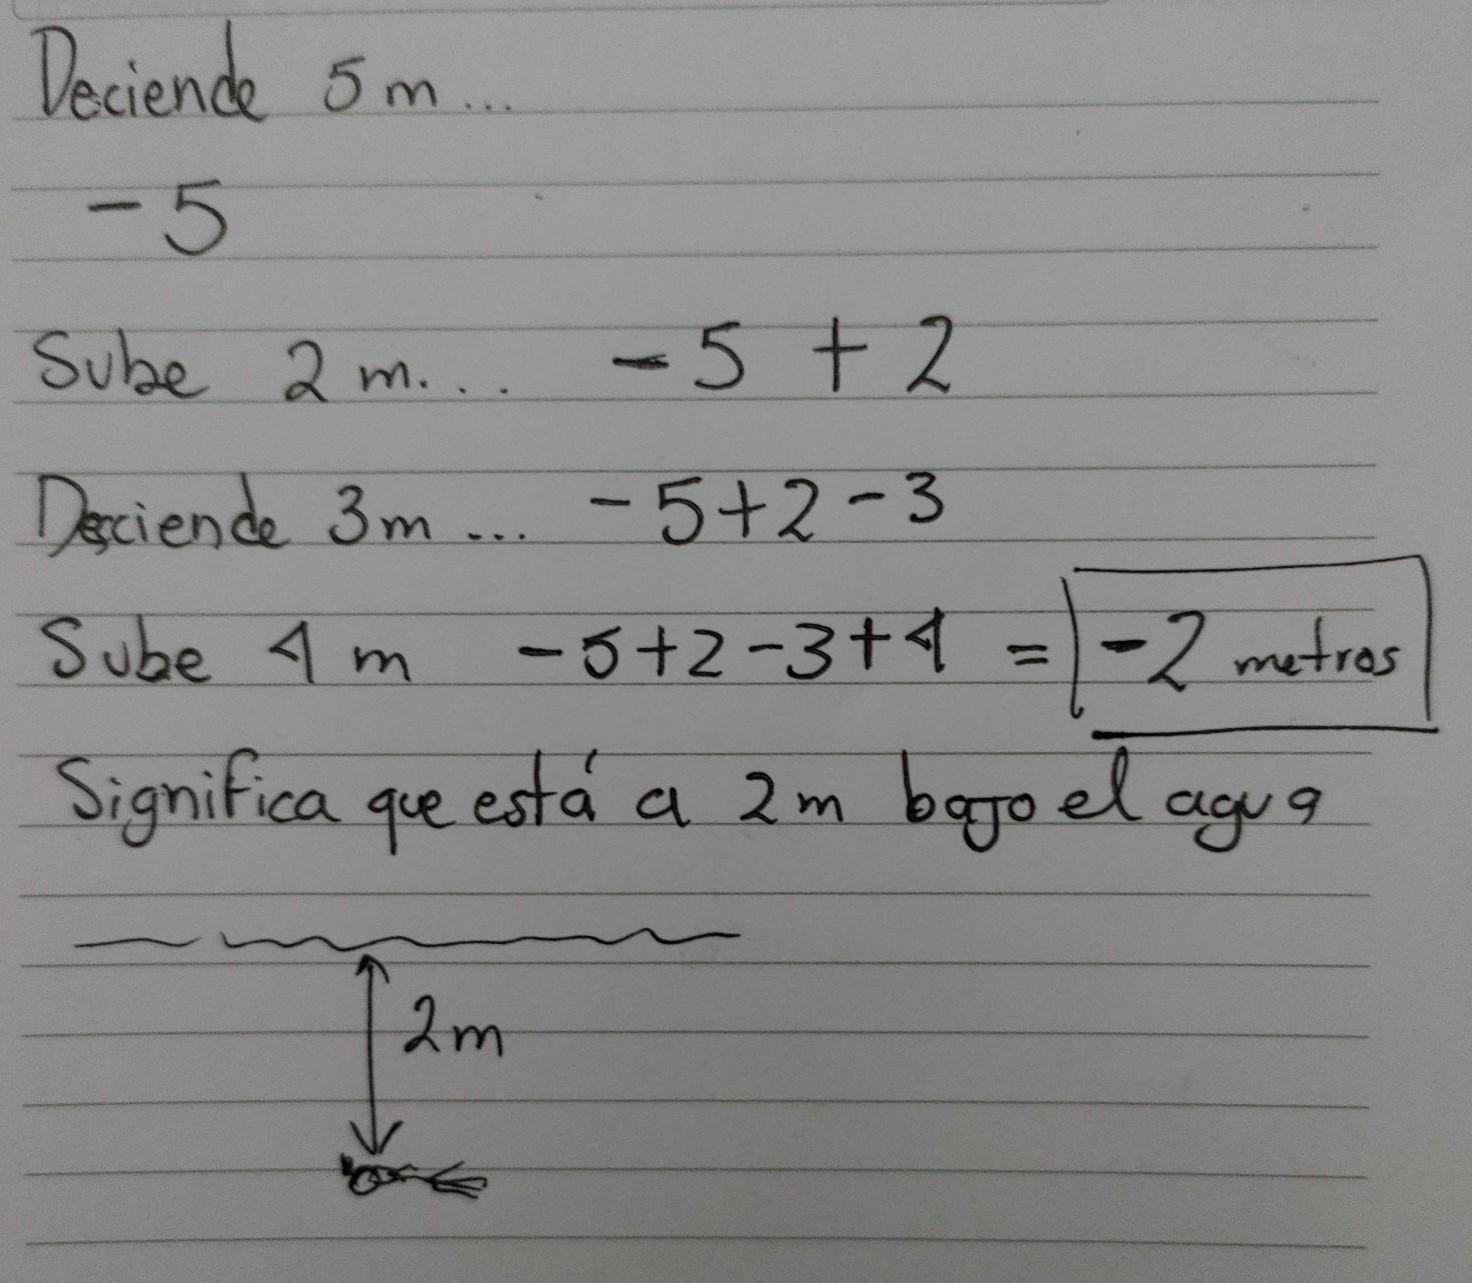 Deciende 5 m...
-5
Sube 2 m... -5 + 2
Desciende 3m... -5+2-3
Sube 4 m -5+2-3+4 = -2 metros
Significa que está a 2m bajo el agua
2m